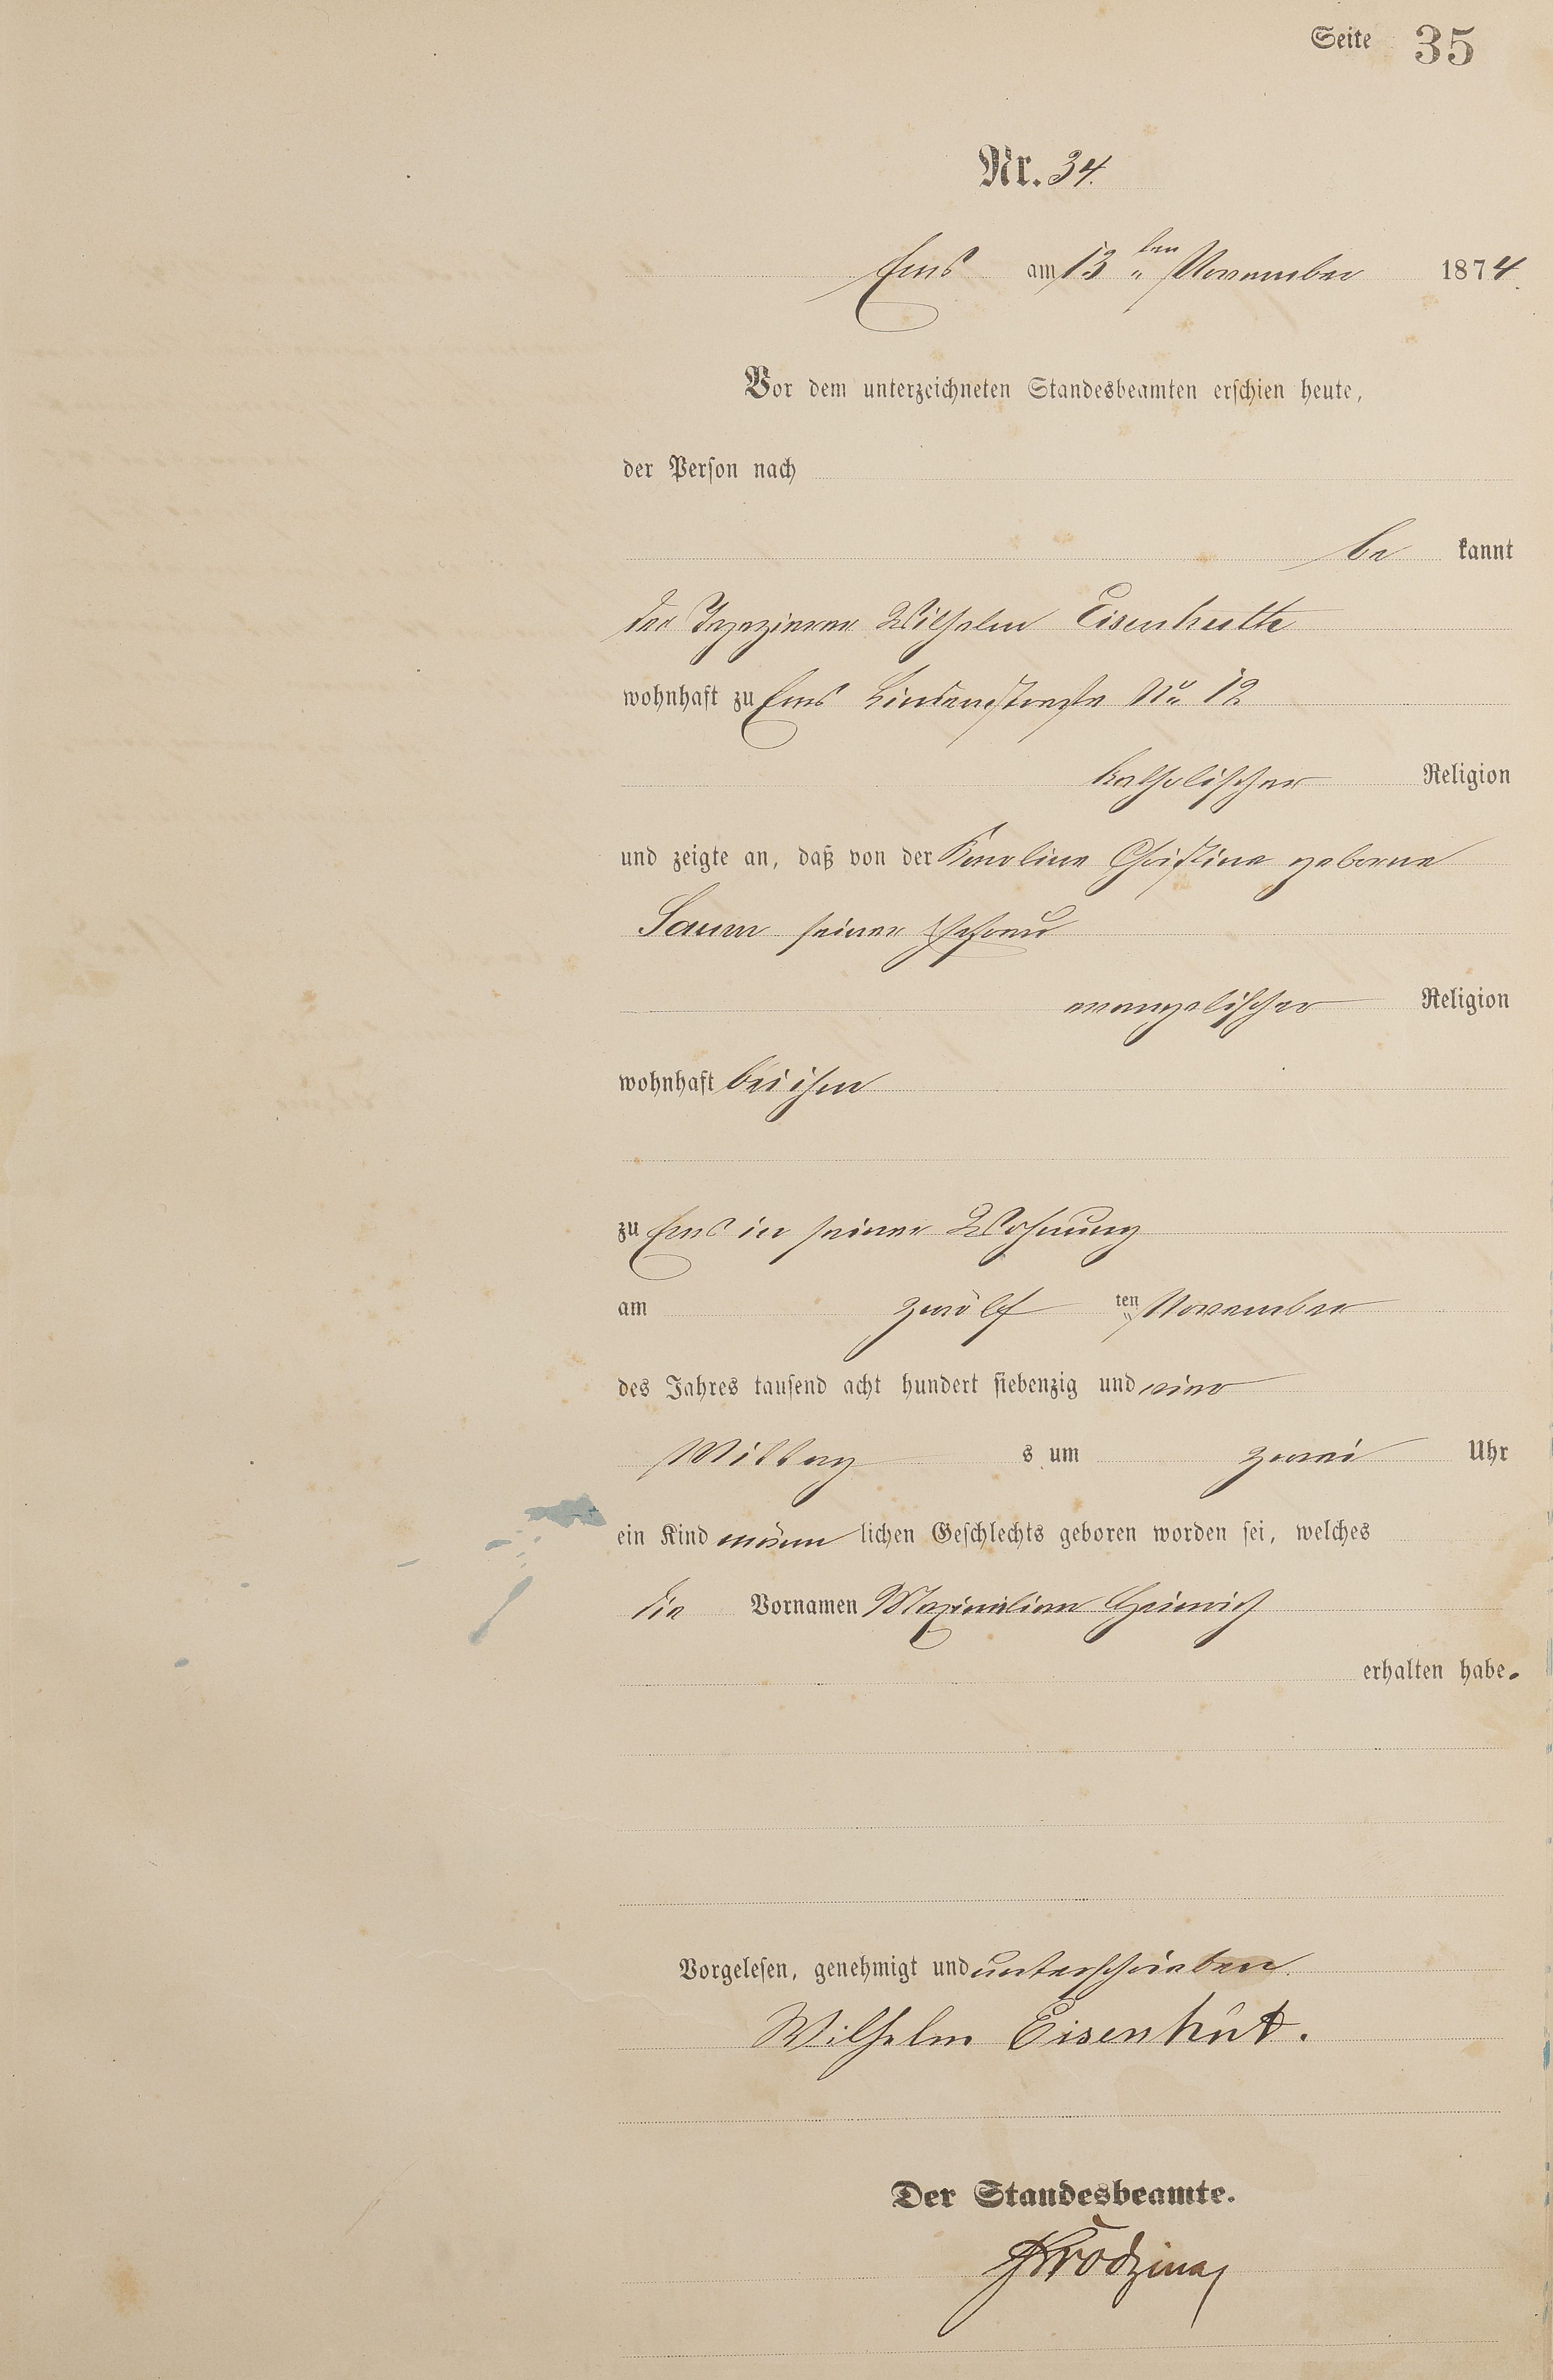 Seite 35
Nr. 34.
Ems am 13ten November 1874.
Vor dem unterzeichneten Standesbeamten erschien heute,
der Person nach
be kannt
der Tapezierer Wilhelm Eisenhuth
wohnhaft zu Ems Lindenstraße No 12
katholischer Religion
und zeigte an, daß von der Karoline Christine geborne
Saum seiner Ehefrau
evangelischer Religion
wohnhaft bei ihm
zu Ems in seiner Wohnung
am zwölf ten November
des Jahres tausend acht hundert siebenzig und vier
Mittag s um zwei Uhr
ein Kind männ lichen Geschlechts geboren worden sei, welches
die Vornamen Maximilian Heinrich
erhalten habe.
Vorgelesen, genehmigt und unterschrieben.
Wilhelm Eisenhut.
Der Standesbeamte.